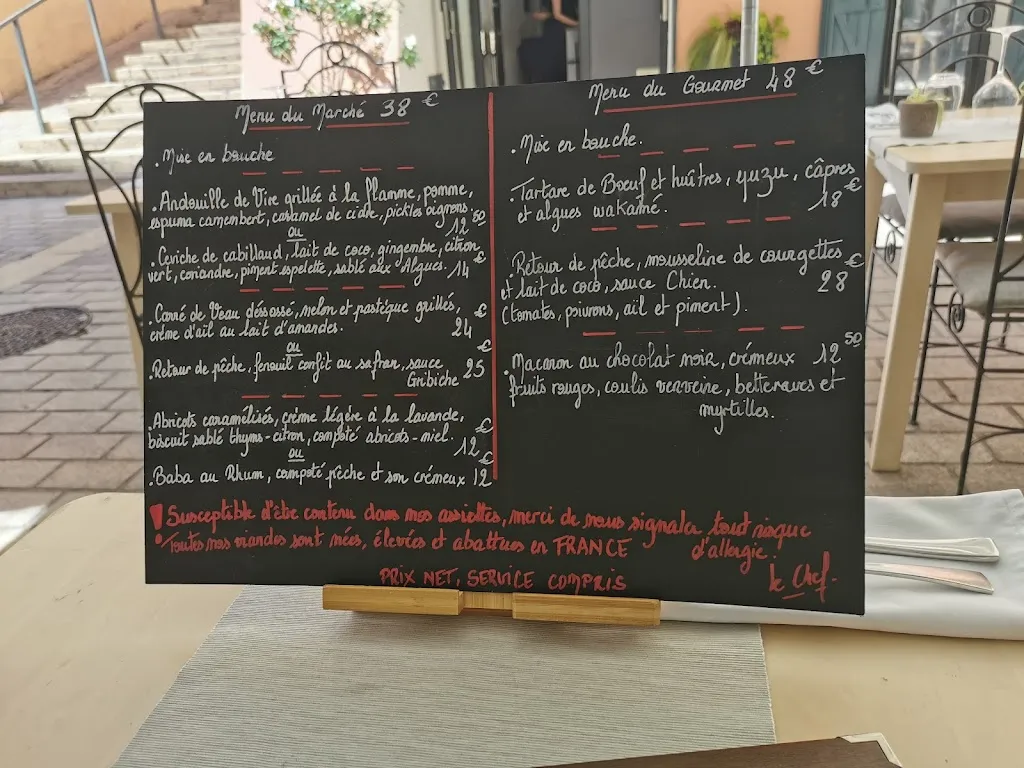 Menu du Marché 38 €
. Mise en bouche
. Andouille de Vire grillée à la flamme, pomme,
espuma camembert, caramel de cidre, pickles oignons.
12 50
ou
. Ceviche de cabillaud, lait de coco, gingembre, citron
vert, coriandre, piment espelette, sablé aux Algues. 14 €
. Carré de Veau désossé, melon et pastèque grillés,
crème d'ail au lait d'amandes. 24 €
ou
. Retour de pêche, fenouil confit au safran, sauce
Gribiche 25 €
. Abricots caramélisés, crème légère à la lavande,
biscuit sablé thyms-citron, compoté abricots-miel. 12 €
ou
. Baba au Rhum, compoté pêche et son crémeux 12 €
Menu du Gourmet 48 €
. Mise en bouche.
. Tartare de Bœuf et huîtres, yuzu, câpres
et algues wakamé. 18 €
. Retour de pêche, mousseline de courgettes
et lait de coco, sauce Chien. 28 €
(tomates, poivrons, ail et piment).
. Macaron au chocolat noir, crémeux 12 50
fruits rouges, coulis verveine, betteraves et
myrtilles.
! Susceptible d'être contenu dans nos assiettes, merci de nous signaler tout risque
d'allergie.
Toutes nos viandes sont nées, élevées et abattues en FRANCE
le Chef.
PRIX NET, SERVICE COMPRIS